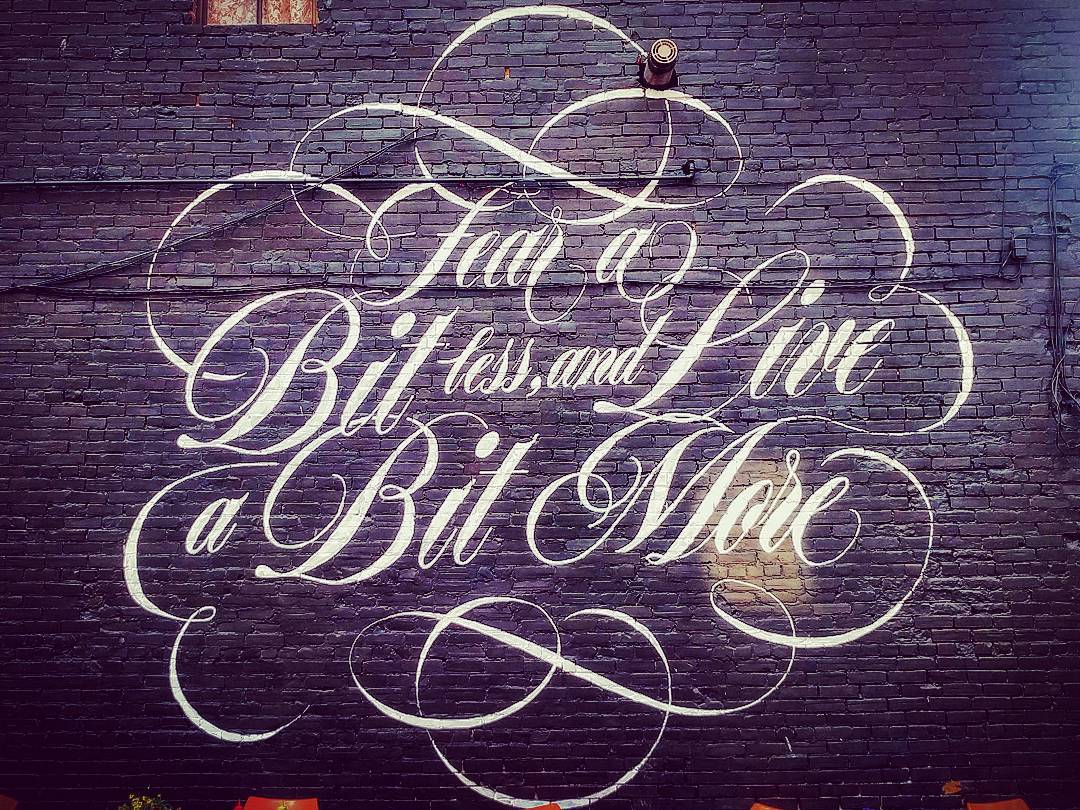 Fear a
Bit less, and Live
a Bit More